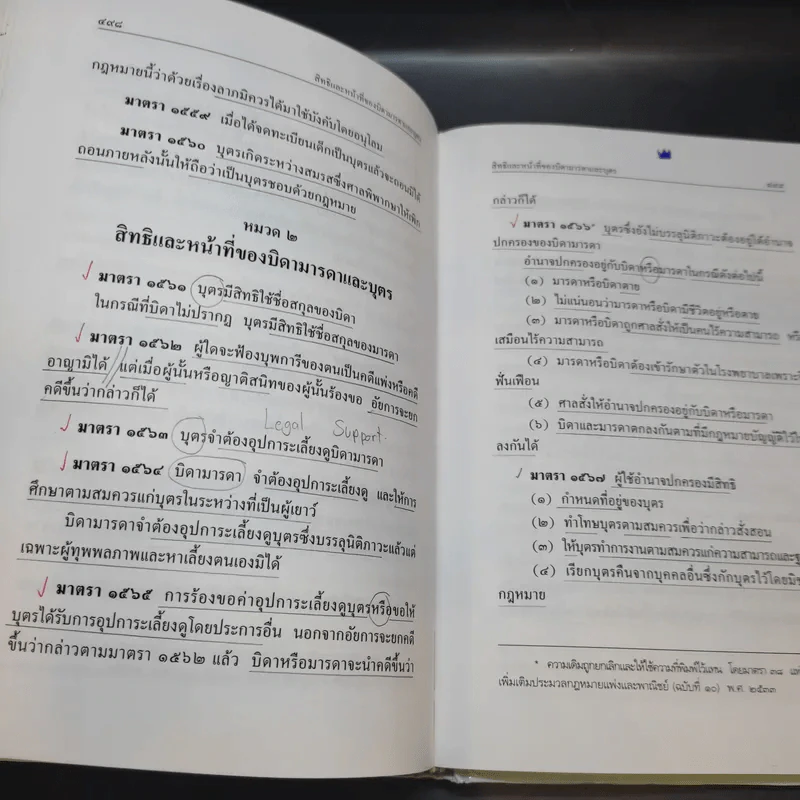 ๔๙๘
สิทธิและหน้าที่ของบิดามารดาและบุตร
กฎหมายนี้ว่าด้วยเรื่องลาภมิควรได้มาใช้บังคับโดยอนุโลม
มาตรา ๑๕๕๙ เมื่อได้จดทะเบียนเด็กเป็นบุตรแล้วจะถอนมิได้
มาตรา ๑๕๖๐ บุตรเกิดระหว่างสมรสซึ่งศาลพิพากษาให้เพิก
ถอนภายหลังนั้นให้ถือว่าเป็นบุตรชอบด้วยกฎหมาย
หมวด ๒
สิทธิและหน้าที่ของบิดามารดาและบุตร
มาตรา ๑๕๖๑ บุตรมีสิทธิใช้ชื่อสกุลของบิดา
ในกรณีที่บิดาไม่ปรากฏ บุตรมีสิทธิใช้ชื่อสกุลของมารดา
มาตรา ๑๕๖๒ ผู้ใดจะฟ้องบุพการีของตนเป็นคดีแพ่งหรือคดี
อาญามิได้ แต่เมื่อผู้นั้นหรือญาติสนิทของผู้นั้นร้องขอ อัยการจะยก
คดีขึ้นว่ากล่าวก็ได้
Legal Support
มาตรา ๑๕๖๓ บุตรจำต้องอุปการะเลี้ยงดูบิดามารดา
มาตรา ๑๕๖๔ บิดามารดา จำต้องอุปการะเลี้ยงดู และให้การ
ศึกษาตามสมควรแก่บุตรในระหว่างที่เป็นผู้เยาว์
บิดามารดาจำต้องอุปการะเลี้ยงดูบุตรซึ่งบรรลุนิติภาวะแล้วแต่
เฉพาะผู้ทุพพลภาพและหาเลี้ยงตนเองมิได้
มาตรา ๑๕๖๕ การร้องขอค่าอุปการะเลี้ยงดูบุตรหรือขอให้
บุตรได้รับการอุปการะเลี้ยงดูโดยประการอื่น นอกจากอัยการจะยกคดี
ขึ้นว่ากล่าวตามมาตรา ๑๕๖๒ แล้ว บิดาหรือมารดาจะนำคดีขึ้นว่า
สิทธิและหน้าที่ของบิดามารดาและบุตร
๔๙๙
กล่าวก็ได้
มาตรา ๑๕๖๖* บุตรซึ่งยังไม่บรรลุนิติภาวะต้องอยู่ใต้อำนาจ
ปกครองของบิดามารดา
อำนาจปกครองอยู่กับบิดาหรือมารดาในกรณีดังต่อไปนี้
(๑) มารดาหรือบิดาตาย
(๒) ไม่แน่นอนว่ามารดาหรือบิดามีชีวิตอยู่หรือตาย
(๓) มารดาหรือบิดาถูกศาลสั่งให้เป็นคนไร้ความสามารถ
เสมือนไร้ความสามารถ
(๔) มารดาหรือบิดาต้องเข้ารักษาตัวในโรงพยาบาลเพราะ
ฟั่นเฟือน
(๕) ศาลสั่งให้อำนาจปกครองอยู่กับบิดาหรือมารดา
(๖) บิดาและมารดาตกลงกันตามที่มีกฎหมายบัญญัติไว้
ลงกันได้
มาตรา ๑๕๖๗ ผู้ใช้อำนาจปกครองมีสิทธิ
(๑) กำหนดที่อยู่ของบุตร
(๒) ทำโทษบุตรตามสมควรเพื่อว่ากล่าวสั่งสอน
(๓) ให้บุตรทำการงานตามสมควรแก่ความสามารถและ
(๔) เรียกบุตรคืนจากบุคคลอื่นซึ่งกักบุตรไว้โดยมิ
กฎหมาย
* ความเดิมถูกยกเลิกและให้ใช้ความที่พิมพ์ไว้แทน โดยมาตรา ๓๘
เพิ่มเติมประมวลกฎหมายแพ่งและพาณิชย์ (ฉบับที่ ๑๐) พ.ศ. ๒๕๓๓